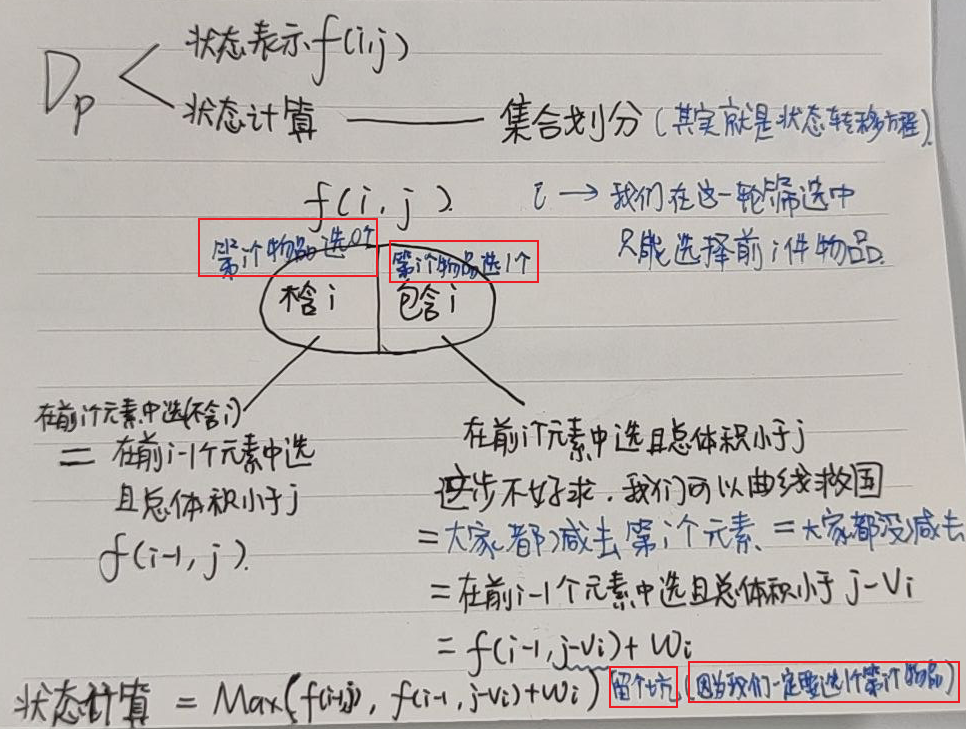 Dp
状态表示 f(i,j)
状态计算 —— 集合划分(其实就是状态转移方程)
f(i,j)
i → 我们在这一轮筛选中
只能选择前i件物品.
第i个物品选0个
第i个物品选1个
不含i
包含i
在前i个元素中选(不含i)
= 在前i-1个元素中选
且总体积小于j
f(i-1,j).
在前i个元素中选且总体积小于j
这步不好求,我们可以曲线救国
=大家都减去第i个元素 =大家都没减去
=在前i-1个元素中选且总体积小于 j-Vi
= f(i-1,j-vi)+Wi
状态计算 = Max(f(i-1,j), f(i-1,j-vi)+Wi) 留个坑 (因为我们一定要选1个第i个物品)